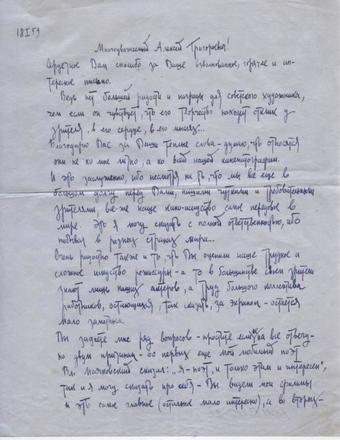 18 I 59
Многоуважаемый Алексей Григорьевич!
Сердечное Вам спасибо за Ваше взволнованное, горячее и ин-
тересное письмо.
Ведь нет большей радости и награды для советского художника,
чем если он чувствует, что его творчество находит отклик у
зрителя, в его сердце, в его мыслях..
Благодарю Вас за Ваши теплые слова - думаю, что относятся
они не ко мне лично, а ко всей нашей кинематографии.
И это заслуженно, ибо несмотря на то что мы все еще в
большом долгу перед Вами, нашими чуткими и требовательными
зрителями, все-же наше кино-искусство самое передовое в
мире. Это я могу сказать с полной ответственностью, ибо
побывал в разных странах мира..
Очень радостно также и то, что Вы оценили наше трудное и
сложное искусство режиссуры - а то в большинстве своем зрители
знают лишь наших актеров, а труд большого коллектива
работников, остающихся, так сказать, за экраном - остается
мало заметным.
Вы задаете мне ряд вопросов - простите если на все отвечу-
по двум причинам - во первых еще мой любимый поэт
Вл. Маяковский сказал: "Я - поэт, и только этим и интересен",
так и я могу сказать про себя - Вы видели мои фильмы
и это самое главное (остальное мало интересно), а во вторых-